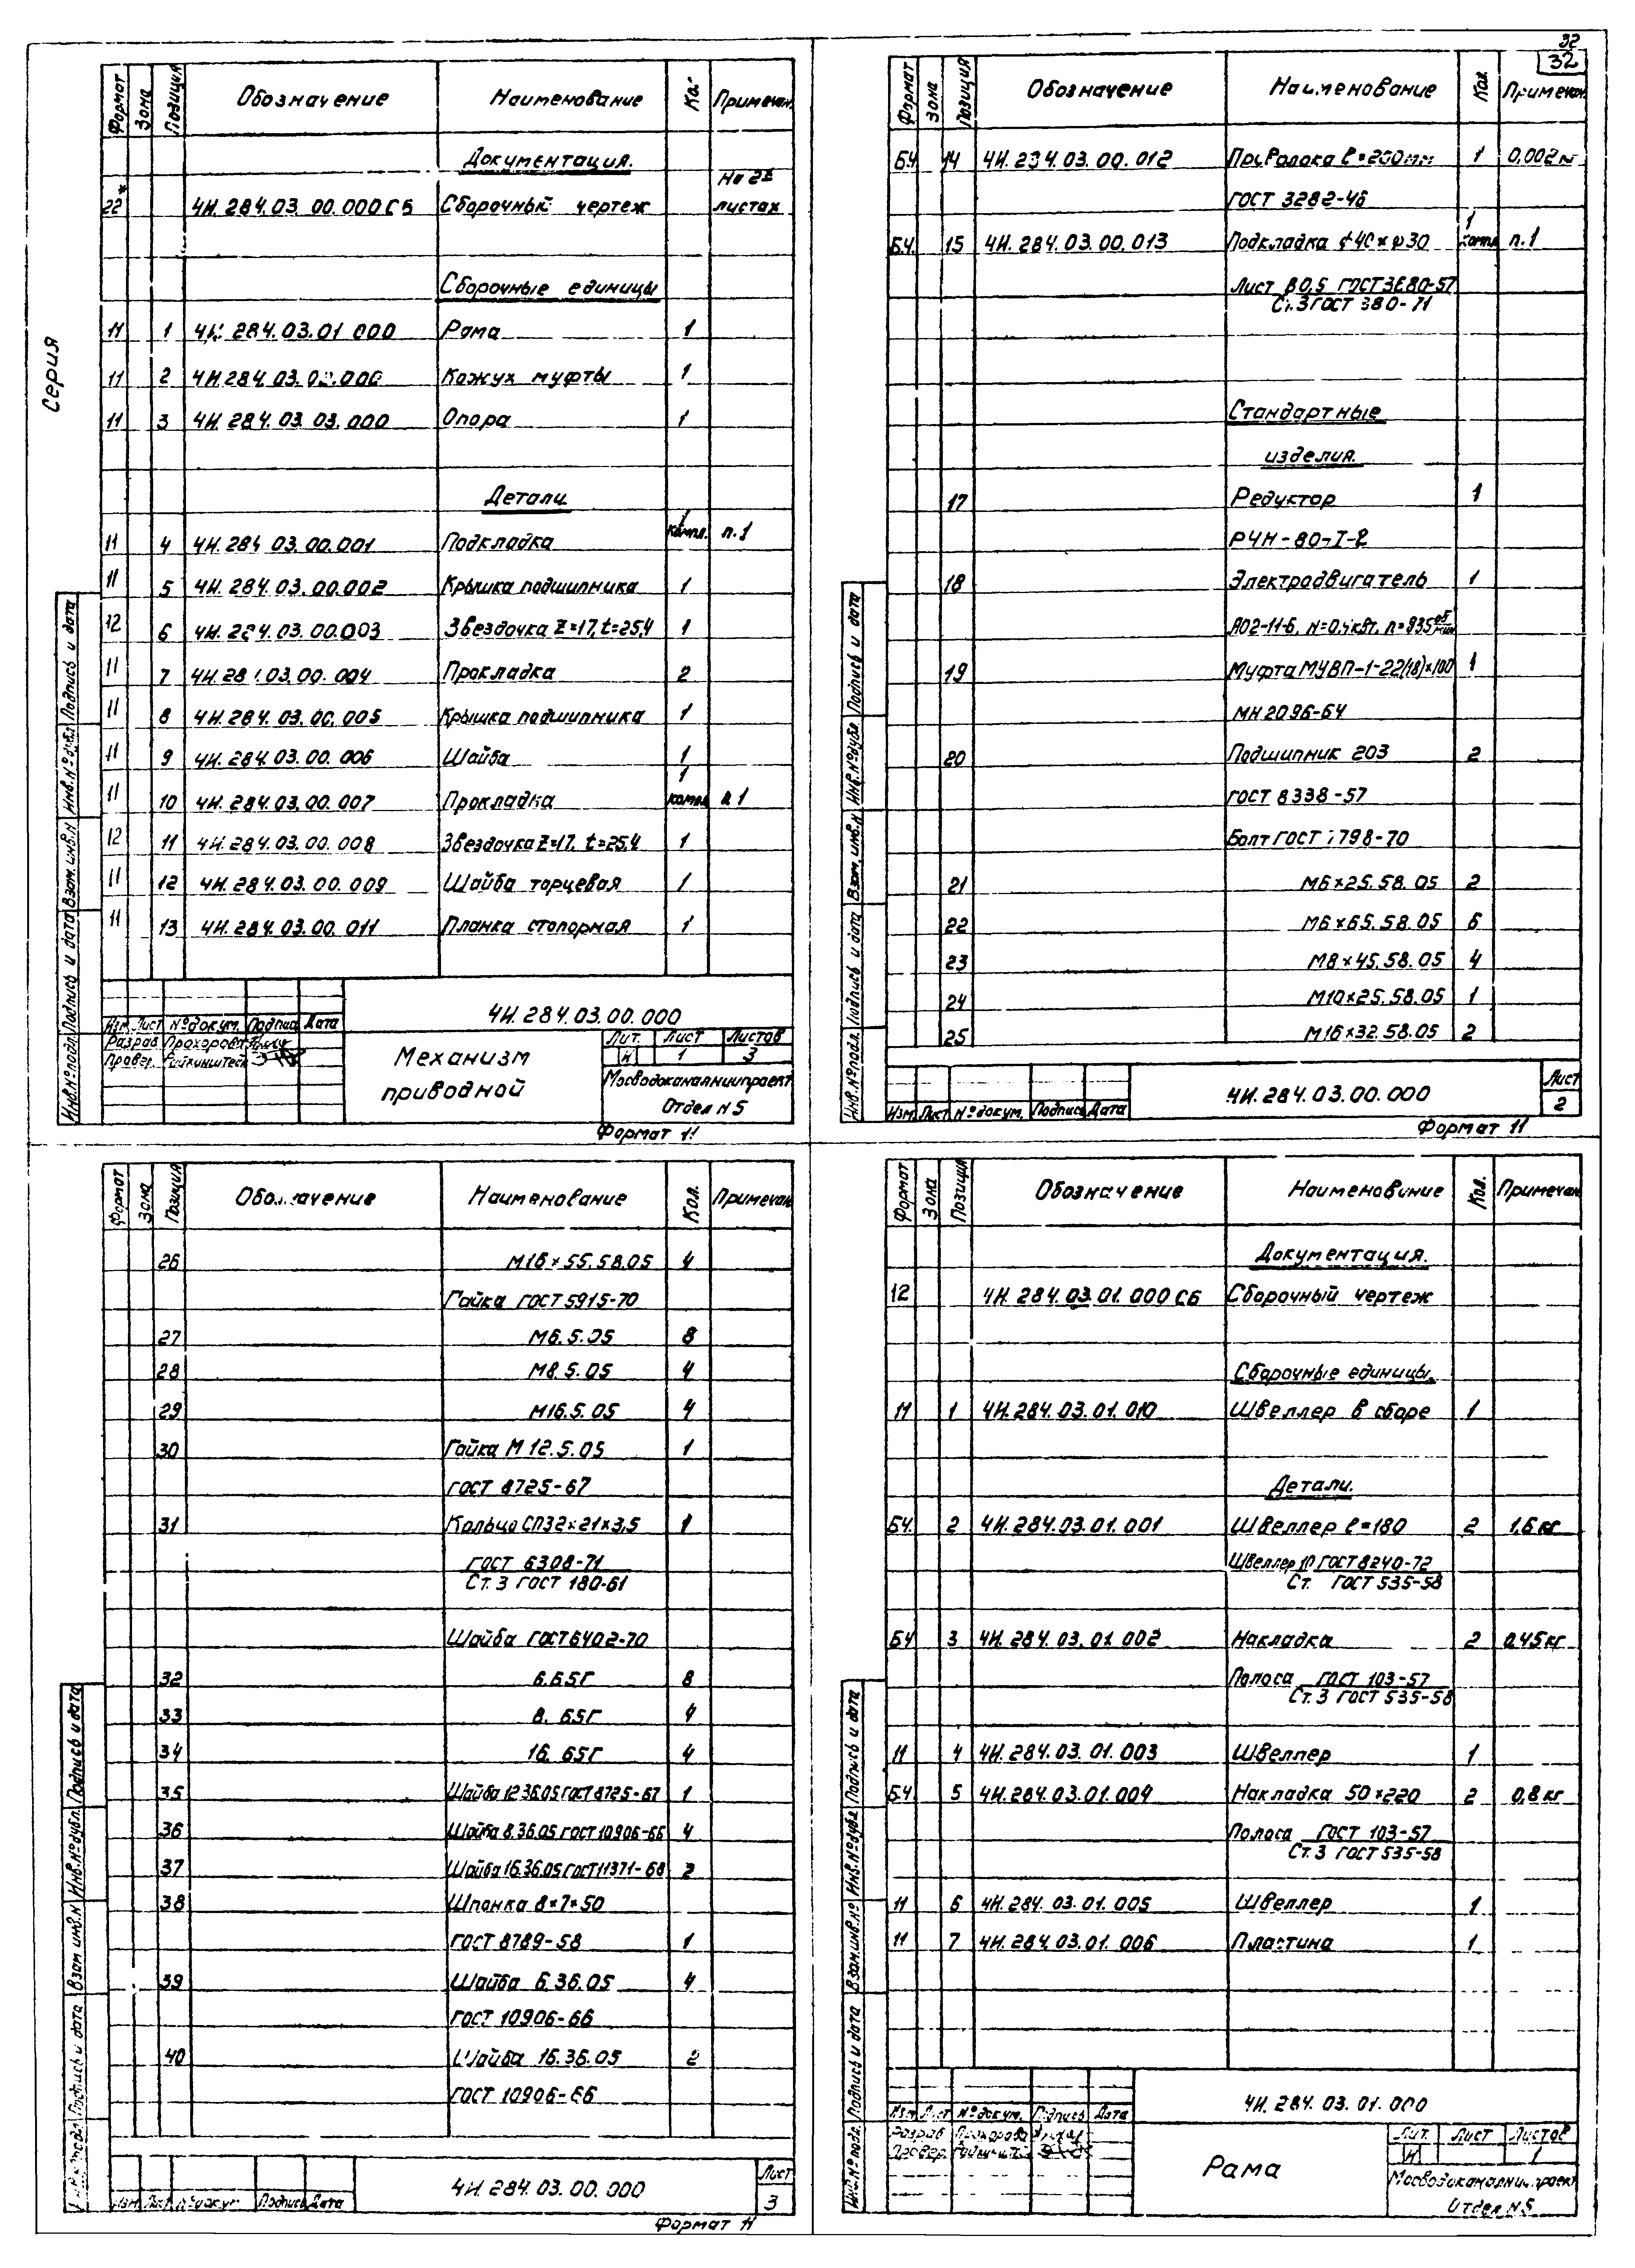 32
32
Серия
Формат Зона Позиция Обозначение Наименование Кол Примечан.
Документация.
На 2х
22* 4И.284.03.00.000СБ Сборочный чертеж листах
Сборочные единицы
11 1 4И.284.03.01 000 Рама 1
11 2 4И.284.03.02.000 Кожух муфты 1
11 3 4И.284.03.03.000 Опора 1
Детали
11 4 4И.284 03.00.001 Подкладка 1 компл. п.1
11 5 4И.284.03.00.002 Крышка подшипника 1
12 6 4И.284.03.00.003 Звездочка Z=17, t=25,4 1
11 7 4И.284.03.00.004 Прокладка 2
11 8 4И.284.03.00.005 Крышка подшипника 1
11 9 4И.284.03.00.006 Шайба 1
11 10 4И.284.03.00.007 Прокладка 1 компл п.1
12 11 4И.284.03.00.008 Звездочка Z=17. t=25,4 1
11 12 4И.284.03.00.009 Шайба торцевая 1
11 13 4И.284.03.00.011 Планка стопорная 1
4И.284.03.00.000
Изм. Лист №докум. Подпись Дата
Разраб Прохорова
Провер.
Механизм
приводной
Лит. Лист Листов
И 1 3
Мосводоканалниипроект
Отдел N5
Формат 11
Инв.№подл. Подпись и дата Взам.инв.N Инв.№дубл Подпись и дата
Формат Зона Позиция Обозначение Наименование Кол Примечан.
БЧ 14 4И.284.03.00.012 Проволока ℓ=200мм 1 0,002кг
ГОСТ 3282-46
БЧ. 15 4И.284.03.00.013 Подкладка ф40×ф30 1 компл п.1
Лист В0,5 ГОСТ 3680-57
Ст.3 ГОСТ 380-71
Стандартные
изделия.
17 Редуктор 1
РЧН-80-I-2
18 Электродвигатель 1
АО2-11-6, N=0,4квт, n=935 об/мин
19 Муфта МУВП-1-22(18)×100 1
МН 2096-64
20 Подшипник 203 2
ГОСТ 8338-57
Болт ГОСТ 7798-70
21 М6×25.58.05 2
22 М6×65.58.05 6
23 М8×45.58.05 4
24 М10×25.58.05 1
25 М16×32.58.05 2
Изм. Лист №докум. Подпись Дата
4И.284.03.00.000
Лист
2
Формат 11
Инв.№подл. Подпись и дата Взам.инв.N Инв.№дубл Подпись и дата
Формат Зона Позиция Обозначение Наименование Кол. Примечан.
26 М16×55.58.05 4
Гайка ГОСТ 5915-70
27 М6.5.05 8
28 М8.5.05 4
29 М16.5.05 4
30 Гайка М12.5.05 1
ГОСТ 8725-67
31 Кольцо СП32×21×3,5 1
ГОСТ 6308-71
Ст.3 ГОСТ 180-61
Шайба ГОСТ6402-70
32 6.65Г 8
33 8.65Г 4
34 16.65Г 4
35 Шайба 12.36.05 ГОСТ 8725-67 1
36 Шайба 8.36.05 ГОСТ 10906-66 4
37 Шайба 16.36.05 ГОСТ 11371-68 2
38 Шпонка 8×7×50
ГОСТ 8789-58 1
39 Шайба 6.36.05 4
ГОСТ 10906-66
40 Шайба 16.36.05 2
ГОСТ 10906-66
Изм. Лист №докум Подпись Дата
4И.284.03.00.000
Лист
3
Формат 11
Подпись и дата Взам инв.N Инв.№дубл. Подпись и дата
Формат Зона Позиция Обозначение Наименование Кол. Примечан.
Документация.
12 4И.284.03.01.000СБ Сборочный чертеж
Сборочные единицы.
11 1 4И.284.03.01.010 Швеллер в сборе 1
Детали.
БЧ. 2 4И.284.03.01.001 Швеллер ℓ=180 2 1,6кг
Швеллер 10 ГОСТ 8240-72
Ст. ГОСТ 535-58
БЧ 3 4И.284.03.01.002 Накладка 2 0,45кг
Полоса ГОСТ 103-57
Ст.3 ГОСТ 535-58
11 4 4И.284.03.01.003 Швеллер 1
БЧ 5 4И.284.03.01.004 Накладка 50×220 2 0,8кг
Полоса ГОСТ 103-57
Ст.3 ГОСТ 535-58
11 6 4И.284.03.01.005 Швеллер 1
11 7 4И.284.03.01.006 Пластина 1
4И.284.03.01.000
Изм Лист №докум. Подпись Дата
Разраб Прохорова
Провер.
Рама
Лит. Лист Листов
И 1
Мосводоканалниипроект
Отдел N5
Инв.№подл. Подпись и дата Взам.инв.№ Инв.№дубл Подпись и дата